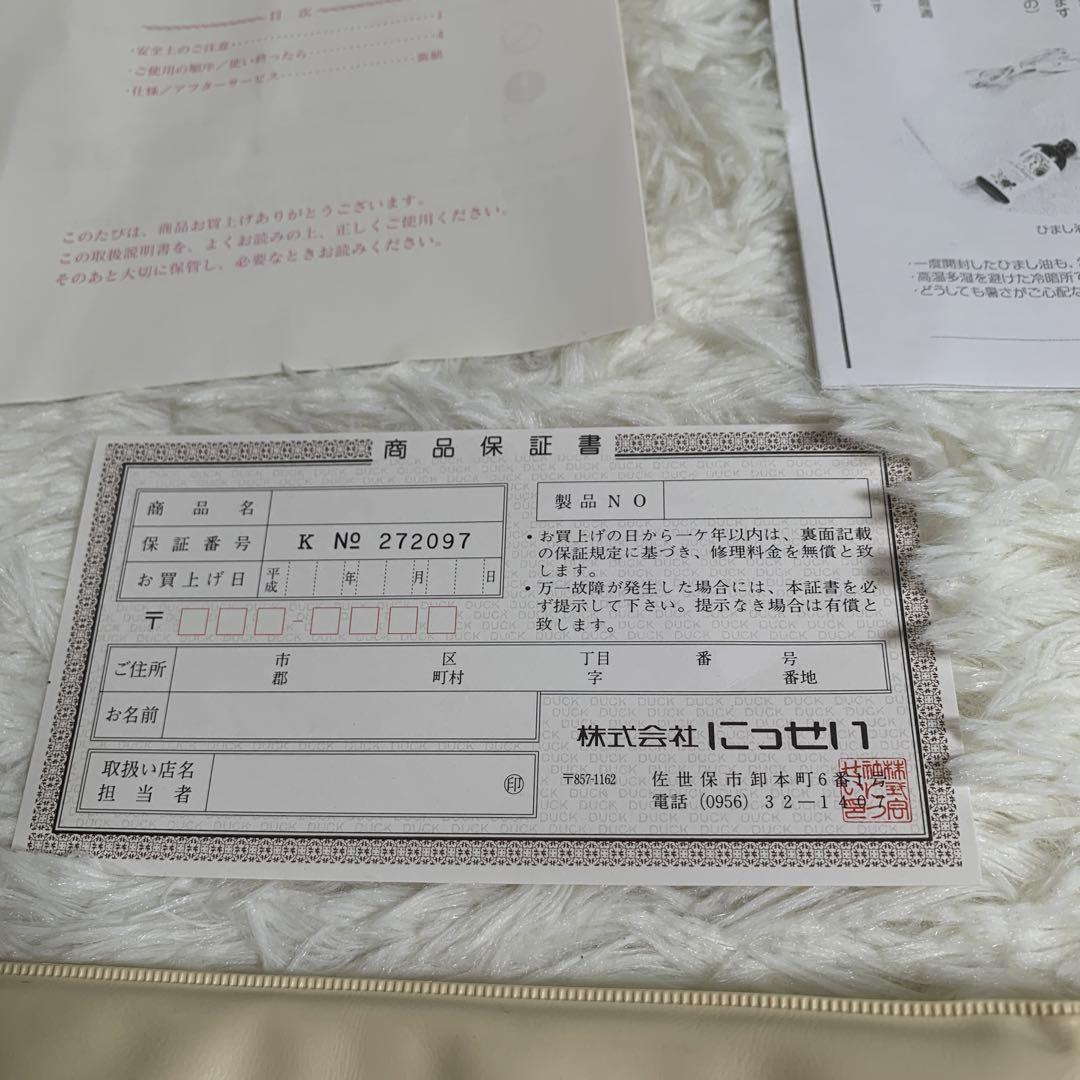 目次
・安全上のご注意 1
・ご使用の順序／使い終ったら 4
・仕様／アフターサービス 裏紙
このたびは、商品お買上げありがとうございます。
この取扱説明書を、よくお読みの上、正しくご使用ください。
そのあと大切に保管し、必要なときお読みください。
ひまし油
・一度開封したひまし油も、
・高温多湿を避けた冷暗所で
・どうしても暑さがご心配な
商品保証書
商品名
保証番号 K № 272097
お買上げ日 平成 年 月 日
〒 -
製品NO
・お買上げの日から一ケ年以内は、裏面記載
の保証規定に基づき、修理料金を無償と致
します。
・万一故障が発生した場合には、本証書を必
ず提示して下さい。提示なき場合は有償と
致します。
ご住所 市 区 丁目 番 号
郡 町村 字 番地
お名前
取扱い店名
担当者 ㊞
株式会社 にっせい
〒857-1162 佐世保市卸本町6番1号
電話 (0956) 32-1403